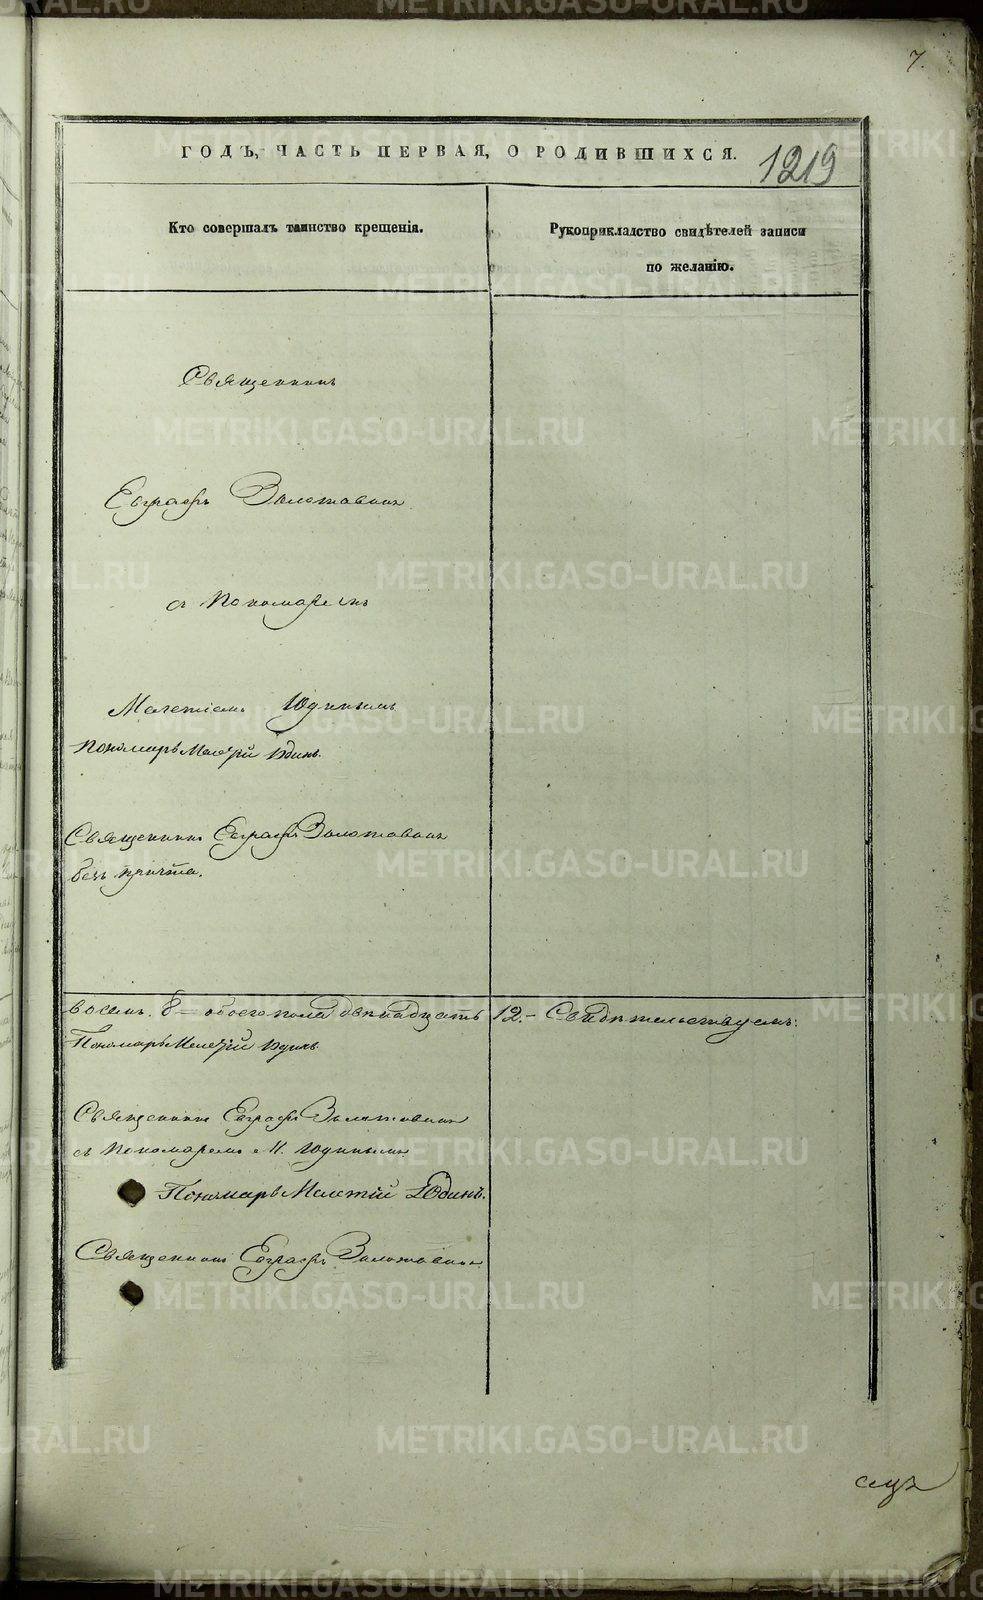 7.
ГОДЪ, ЧАСТЬ ПЕРВАЯ, О РОДИВШИХСЯ.
1219
Кто совершалъ таинство крещенія.
Рукоприкладство свидѣтелей записи
по желанію.
Священникъ
Евграфъ Золотавинъ
съ Пономаремъ
Мелетіемъ Юдинымъ
Пономарь Мелетій Юдинъ.
Священникъ Евграфъ Золотавинъ
безъ причта.
восемь. 8 — обоего пола двенадцать 12. — Свидѣтельствуемъ:
Пономарь Мелетій Юдинъ.
Священникъ Евграфъ Золотавинъ
съ Пономаремъ М. Юдинымъ
Пономарь Мелетій Юдинъ.
Священникъ Евграфъ Золотавинъ.
METRIKI.GASO-URAL.RU